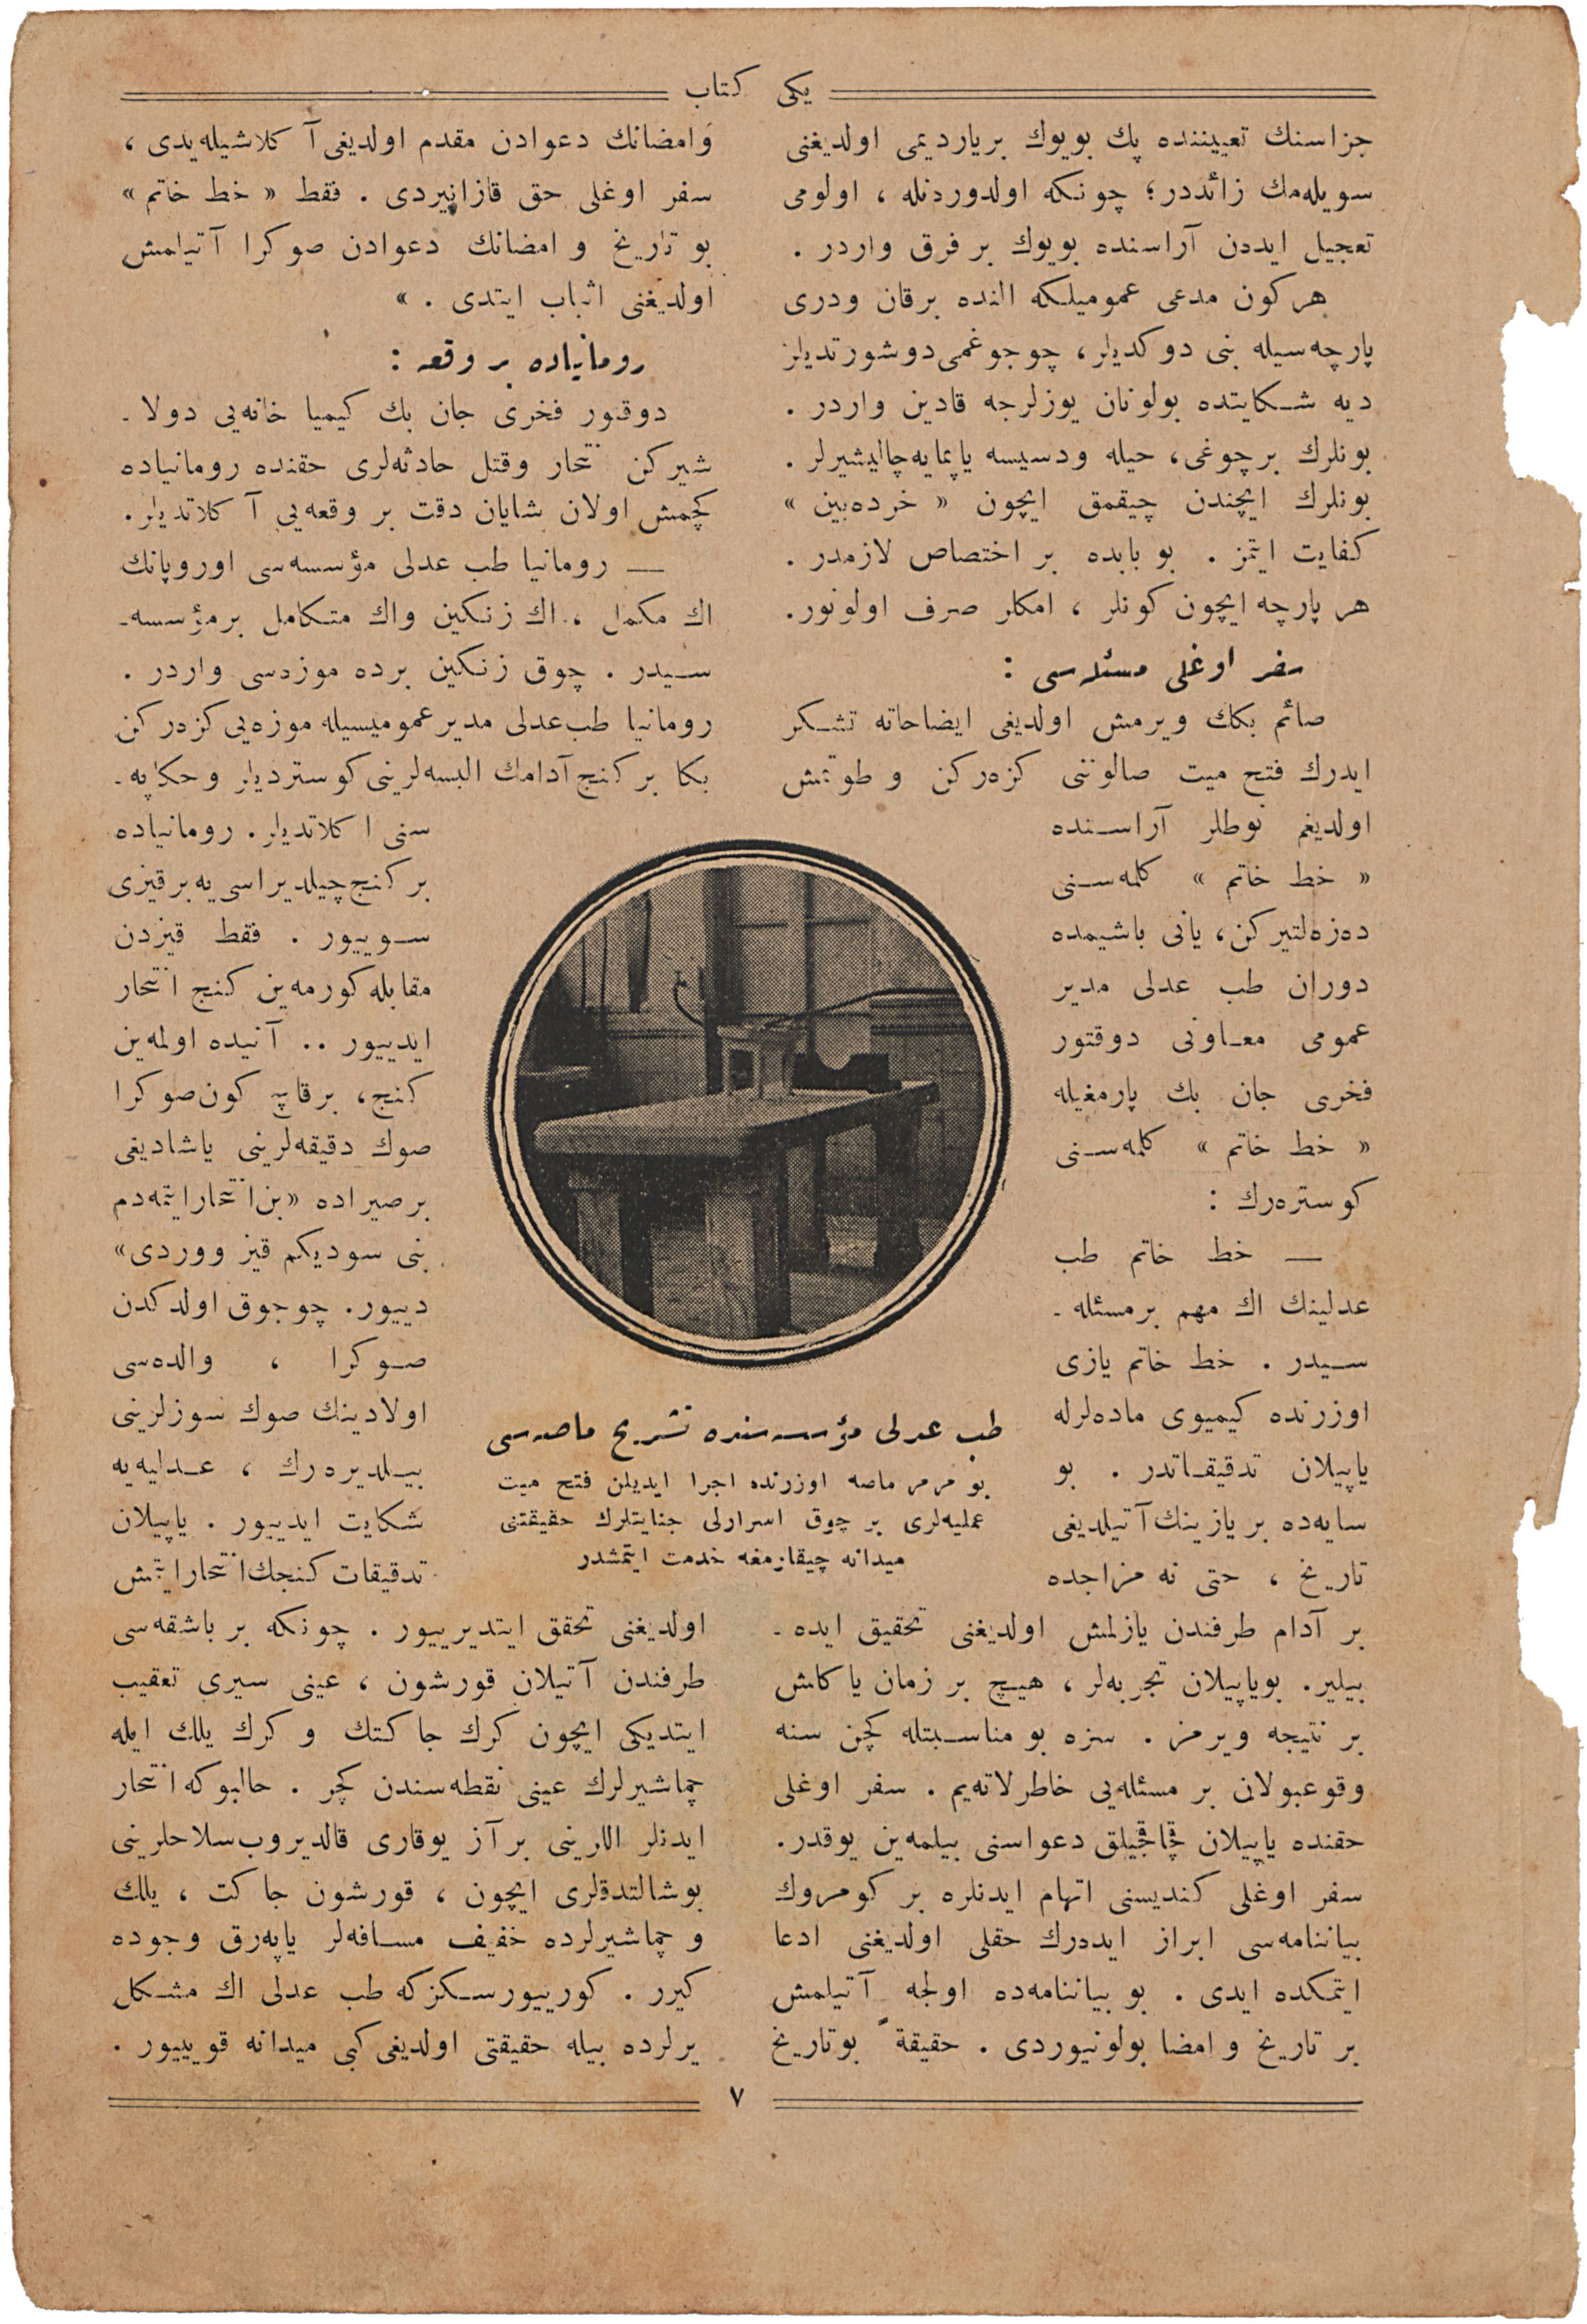 یكی كتاب
جزاسنك تعییننده پك بویوك بریاردیمی اولدیغنی
سویله‌مك زائددر؛ چونكه اولدوردنله ، اولومی
تعجیل ایددن آراسنده بویوك بر فرق واردر .
هركون مدعی عمومیلكه النده برقان ودری
پارچه‌سیله بنی دوكدیلر، چوجوغمی دوشورتدیلر
دیه شكایتده بولونان یوزلرجه قادین واردر .
بونلرك برچوغی، حیله ودسیسه یاپمایه چالیشیرلر .
بونلرك ایچندن چیقمق ایچون « خرده‌بین »
كفایت ایتمز . بو بابده بر اختصاص لازمدر .
هر پارچه ایچون كونلر ، امكلر صرف اولونور.
سفر اوغلی مسئله‌سی :
صائم بكك ویرمش اولدیغی ایضاحاته تشكر
ایدرك فتح میت صالوننی كزه‌ركن و طوتمش
اولدیغم نوطلر آراسنده
« خط خاتم » كلمه‌سنی
ده‌زه‌لتیركن، یانی باشیمده
دوران طب عدلی مدیر
عمومی معاونی دوقتور
فخری جان بك پارمغیله
« خط خاتم » كلمه‌سنی
كوستره‌رك :
— خط خاتم طب
عدلینك اك مهم برمسئله‌-
سیدر . خط خاتم یازی
اوزرنده كیمیوی ماده‌لرله
یاپیلان تدقیقاتدر . بو
سایه‌ده بریازینك آتیلدیغی
تاریخ ، حتی نه مزاجده
بر آدام طرفندن یازلمش اولدیغنی تحقیق ایده‌-
بیلیر. بویاپیلان تجربه‌لر ، هیچ بر زمان یاكلش
بر نتیجه ویرمز . سزه بو مناسبتله كچن سنه
وقوعبولان بر مسئله‌یی خاطرلاته‌یم . سفر اوغلی
حقنده یاپیلان قاچاقچیلق دعواسنی بیلمه‌ین یوقدر.
سفر اوغلی كندیسنی اتهام ایدنلره بر كومروك
بیاننامه‌سی ابراز ایددرك حقلی اولدیغنی ادعا
ایتمكده ایدی . بو بیاننامه‌ده اولجه آتیلمش
بر تاریخ و امضا بولونیوردی . حقیقةً بوتاریخ
وامضانك دعوادن مقدم اولدیغی آكلاشیله‌یدی ،
سفر اوغلی حق قازانیردی . فقط « خط خاتم »
بو تاریخ و امضانك دعوادن صوكرا آتیلمش
اولدیغنی اثبات ایتدی . »
رومانیاده بر وقعه :
دوقتور فخری جان بك كیمیا خانه‌یی دولا-
شیركن انتحار وقتل حادثه‌لری حقنده رومانیاده
كچمش اولان شایان دقت بر وقعه‌یی آكلاتدیلر.
— رومانیا طب عدلی مؤسسه‌سی اوروپانك
اك مكمل ، اك زنكین واك متكامل برمؤسسه-
سیدر . چوق زنكین برده موزه‌سی واردر .
رومانیا طب‌عدلی مدیرعمومیسیله موزه‌یی كزه‌ركن
بكا بر كنج آدامك البسه‌لرینی كوستردیلر وحكایه-
سنی اكلاتدیلر. رومانیاده
بر كنج چیلدیراسی‌یه برقیزی
سوییور . فقط قیزدن
مقابله كورمه‌ین كنج انتحار
ایدییور .. آنیده اولمه‌ین
كنج، برقاچ كون صوكرا
صوك دقیقه‌لرینی یاشادیغی
برصیراده «بن انتحارایتمه‌دم
بنی سودیكم قیز ووردی»
دییور. چوجوق اولدكدن
صوكرا ، والده‌سی
اولادینك صوك سوزلرینی
بیلدیره‌رك ، عدلیه‌یه
شكایت ایدییور . یاپیلان
تدقیقات كنجك انتحارایتمش
اولدیغنی تحقق ایتدیرییور . چونكه بر باشقه‌سی
طرفندن آتیلان قورشون ، عینی سیری تعقیب
ایتدیكی ایچون كرك جاكتك و كرك یلك ایله
چماشیرلرك عینی نقطه‌سندن كچر . حالبوكه انتحار
ایدنلر اللرینی برآز یوقاری قالدیروب سلاحلرینی
بوشالتدقلری ایچون ، قورشون جاكت ، یلك
و چماشیرلرده خفیف مسافه‌لر یاپه‌رق وجوده
كیرر . كورییورسكزكه طب عدلی اك مشكل
یرلرده بیله حقیقتی اولدیغی كبی میدانه قوییور .
طب عدلی مؤسسه‌سنده تشریح ماصه‌سی
بو مرمر ماصه اوزرنده اجرا ایدیلن فتح میت
عملیه‌لری بر چوق اسرارلی جنایتلرك حقیقتنی
میدانه چیقارمغه خدمت ایتمشدر
٧